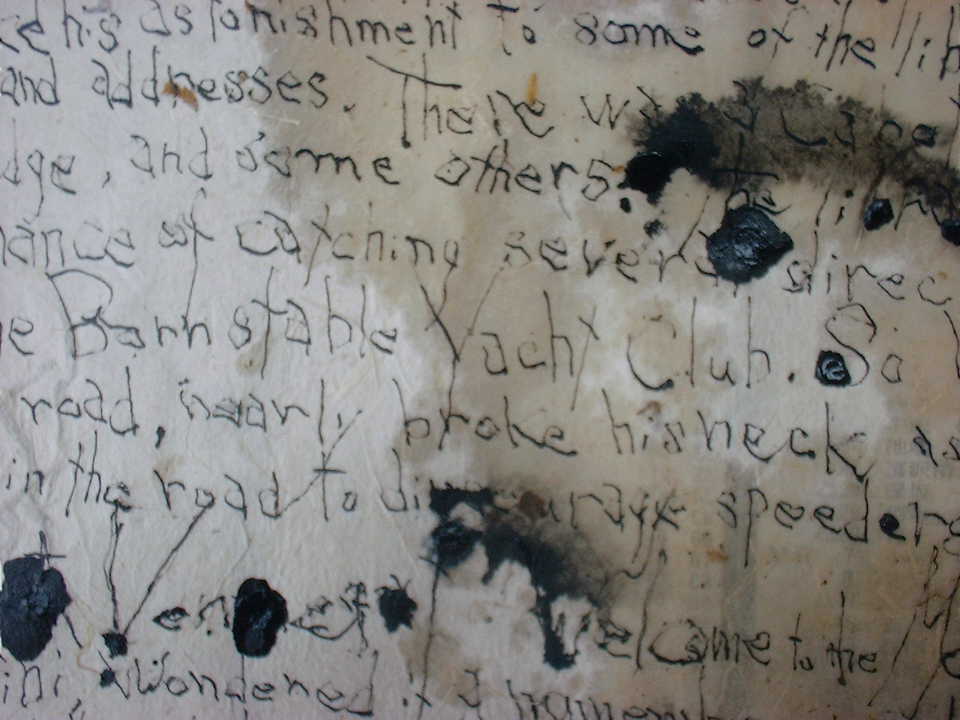 his astonishment to some of the
and addresses. There was Cape
dge, and some others. the
hance of catching several direc
e Barnstable Yacht Club. So
road, nearly broke his neck as
in the road to discourage speeders
welcome to the
ini, wondered if a